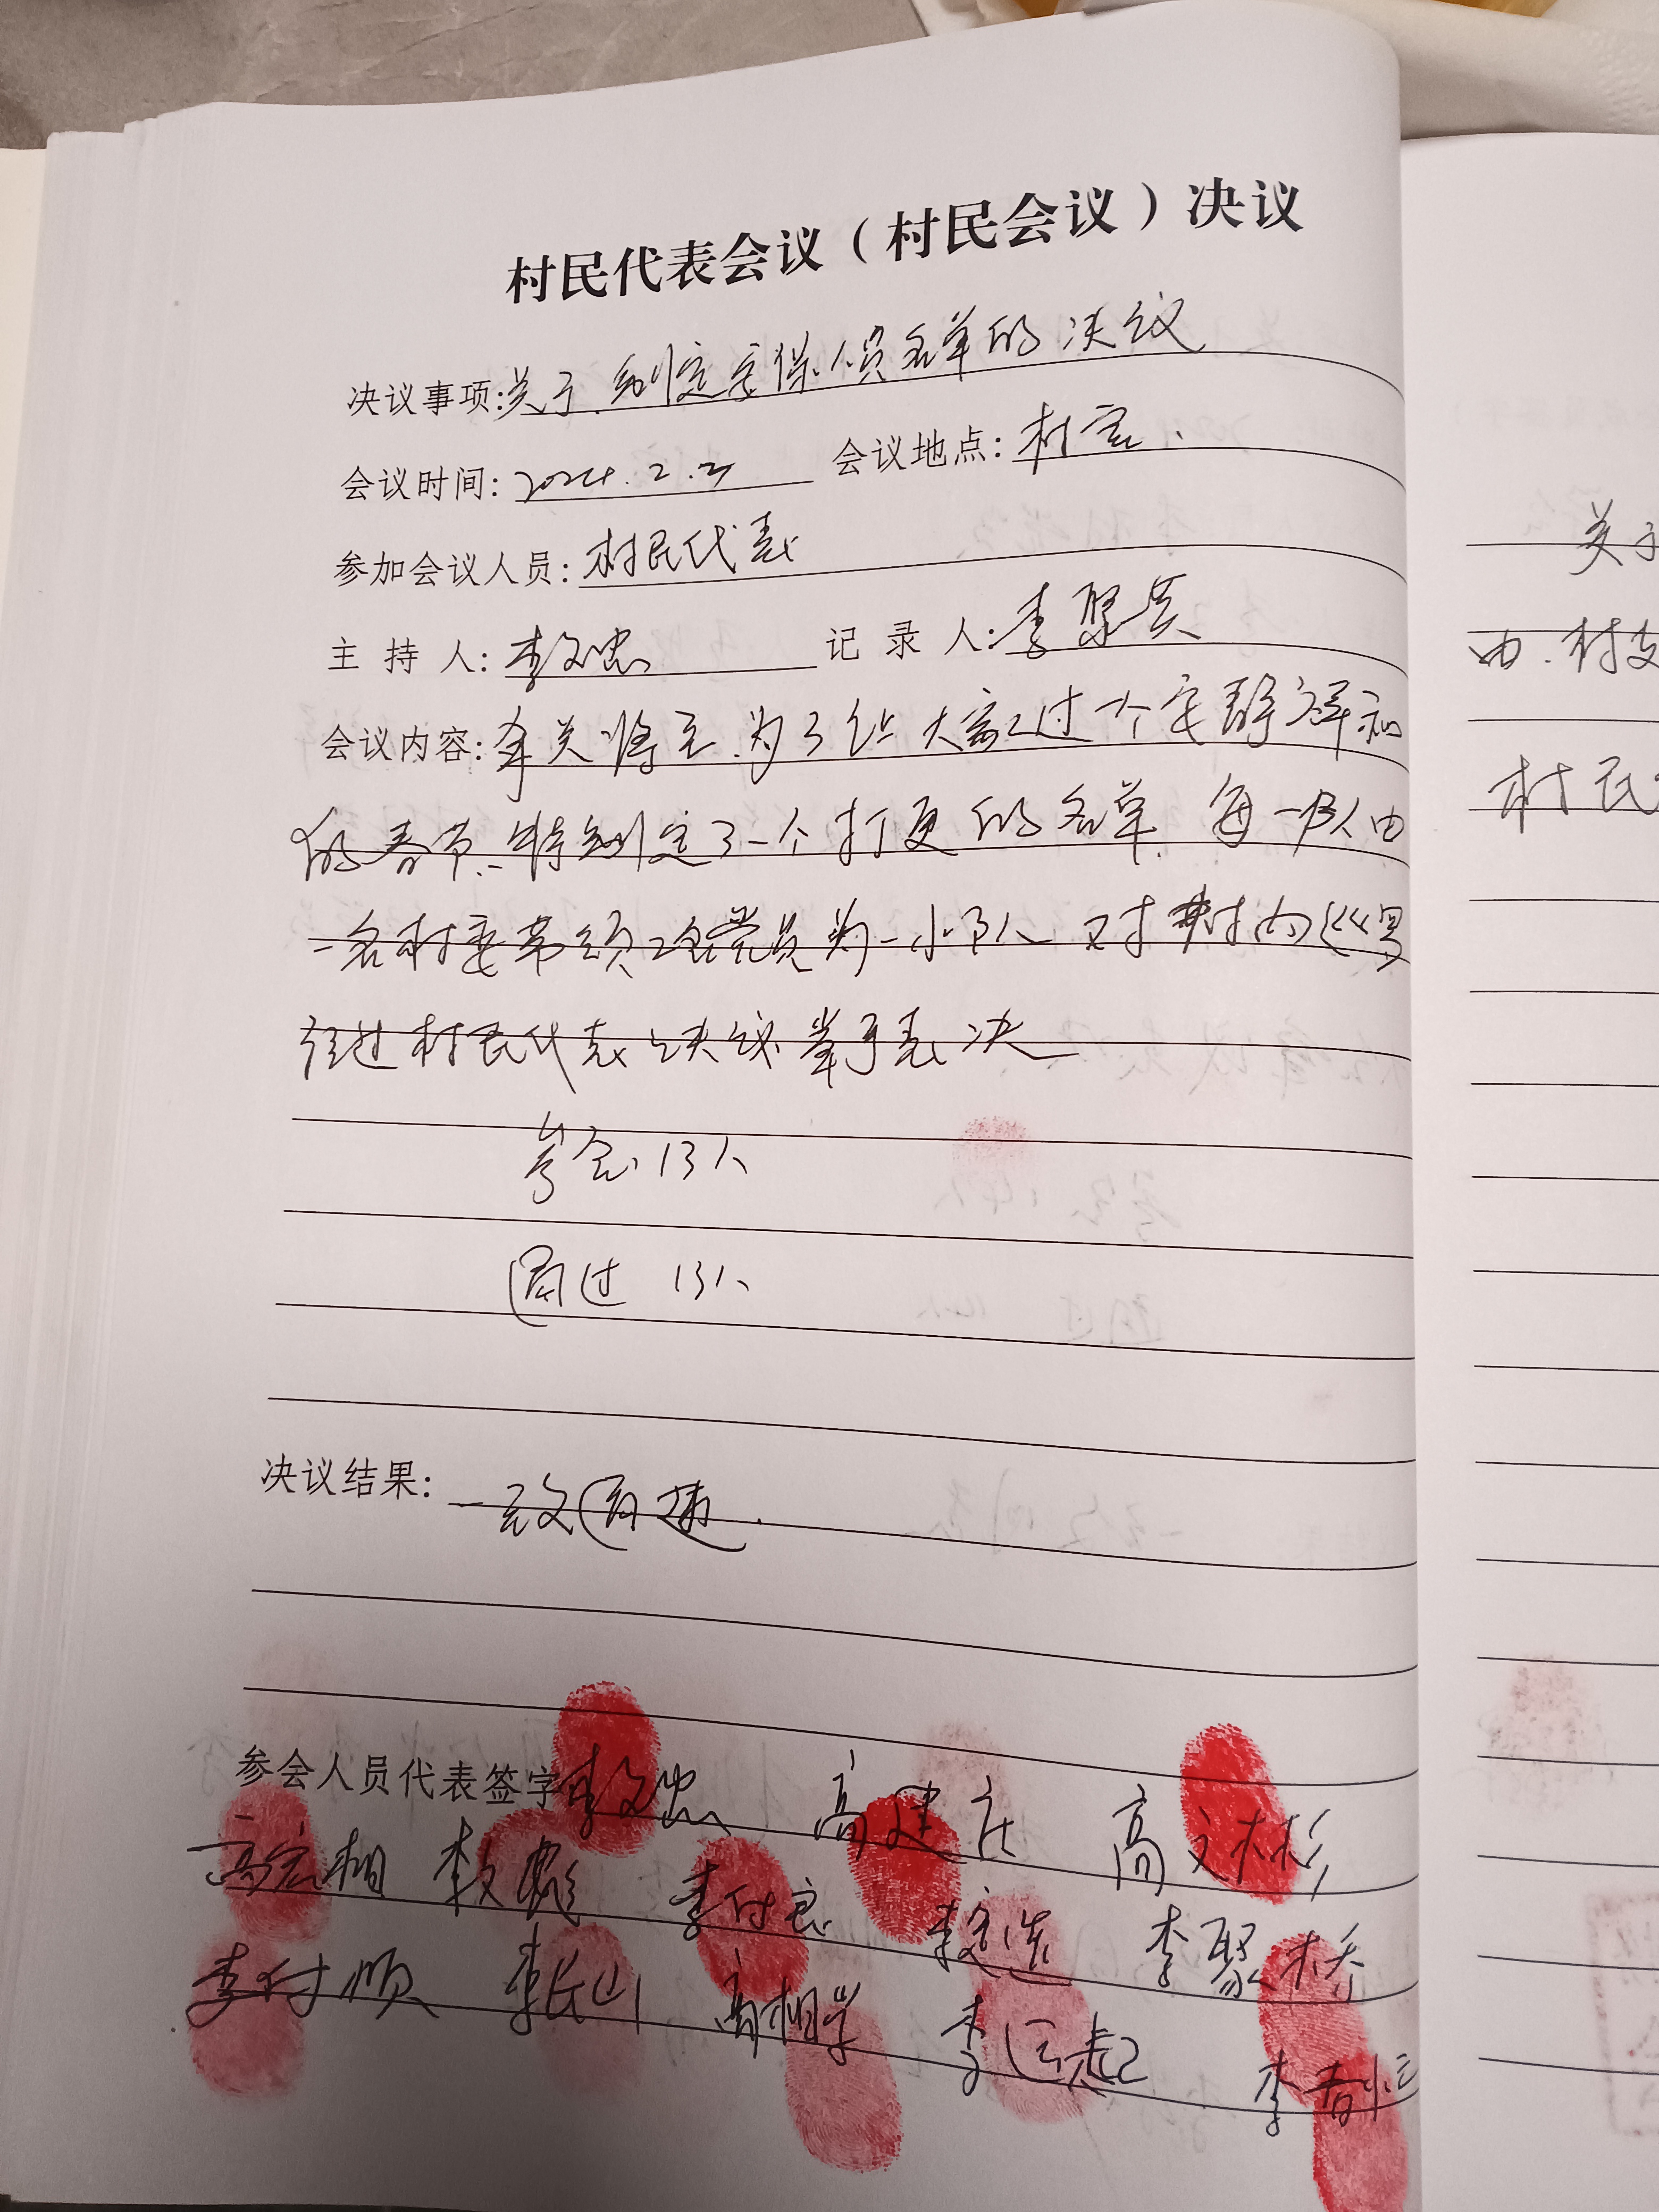 村民代表会议（村民会议）决议
决议事项:关于制定安保人员名单的决议
会议时间: 2024.2.2 会议地点: 村室.
参加会议人员: 村民代表
主持人: 李文忠 记录人: 李聚兵
会议内容: 年关将至.为了让大家过一个安静祥和
的春节.特制定了一个打更的名单.每一队由
一名村委带领2名党员为一小队 对村内巡
经过村民代表决议举手表决
参会13人
通过 13人
决议结果: 一致通过.
参会人员代表签字 李文忠 高建庄 高文彬
高宏相 李文彪 李付良 李选 李聚桥
李付顺 李长山 高相学 李运起 李春恒
关于
由.村支
村民